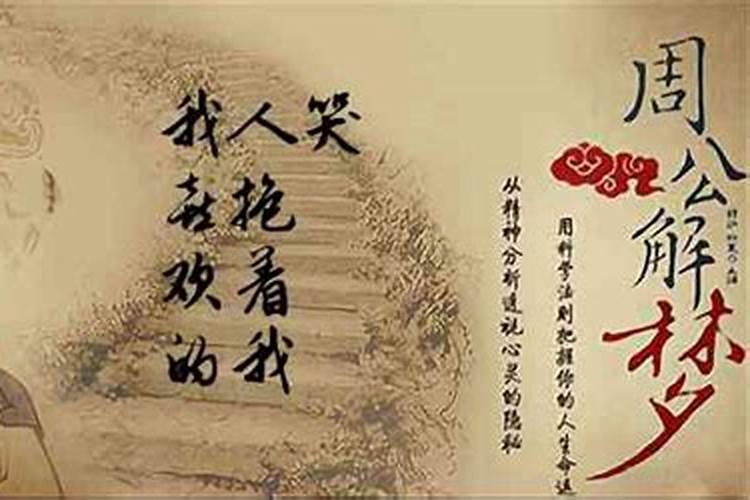 我喜欢的
人抱着我
哭
周公解梦
用科学法则把握你的人生命运
从精神分析透视心灵的隐秘